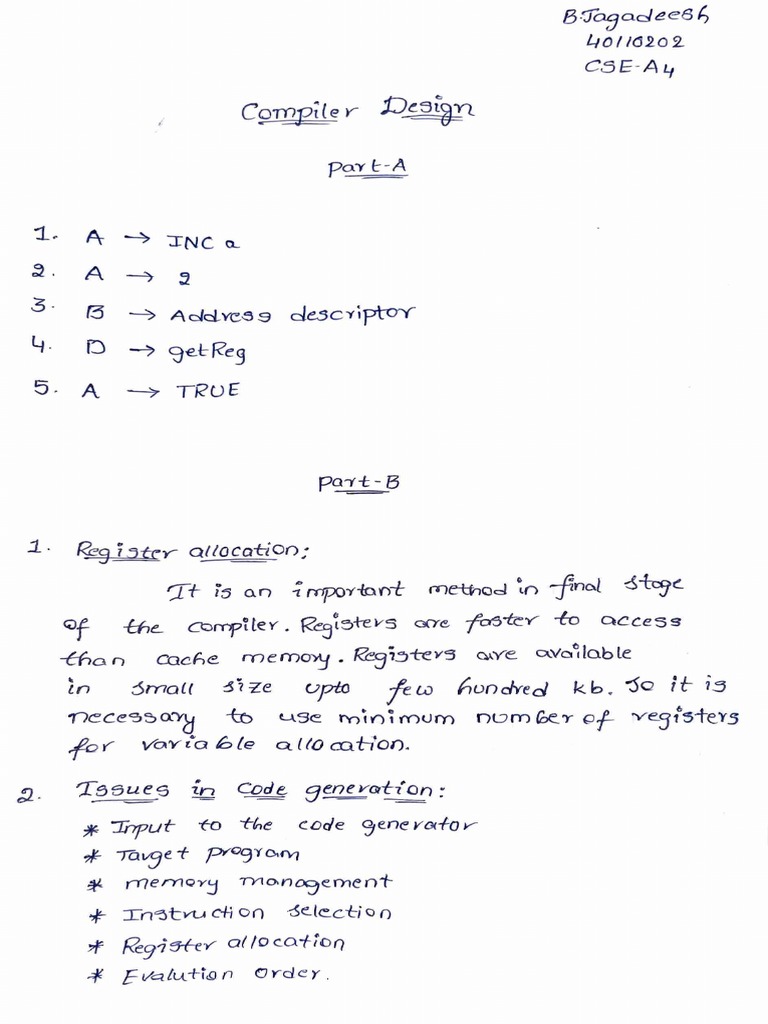 B.Jagadeesh
40110202
CSE-A4
Compiler Design
Part-A
1. A → INC a
2. A → 2
3. B → Address descriptor
4. D → getReg
5. A → TRUE
Part-B
1. Register allocation:
It is an important method in final stage
of the compiler. Registers are faster to access
than cache memory. Registers are available
in small size upto few hundred kb. So it is
necessary to use minimum number of registers
for variable allocation.
2. Issues in code generation:
* Input to the code generator
* Target program
* memory management
* Instruction selection
* Register allocation
* Evalution Order.